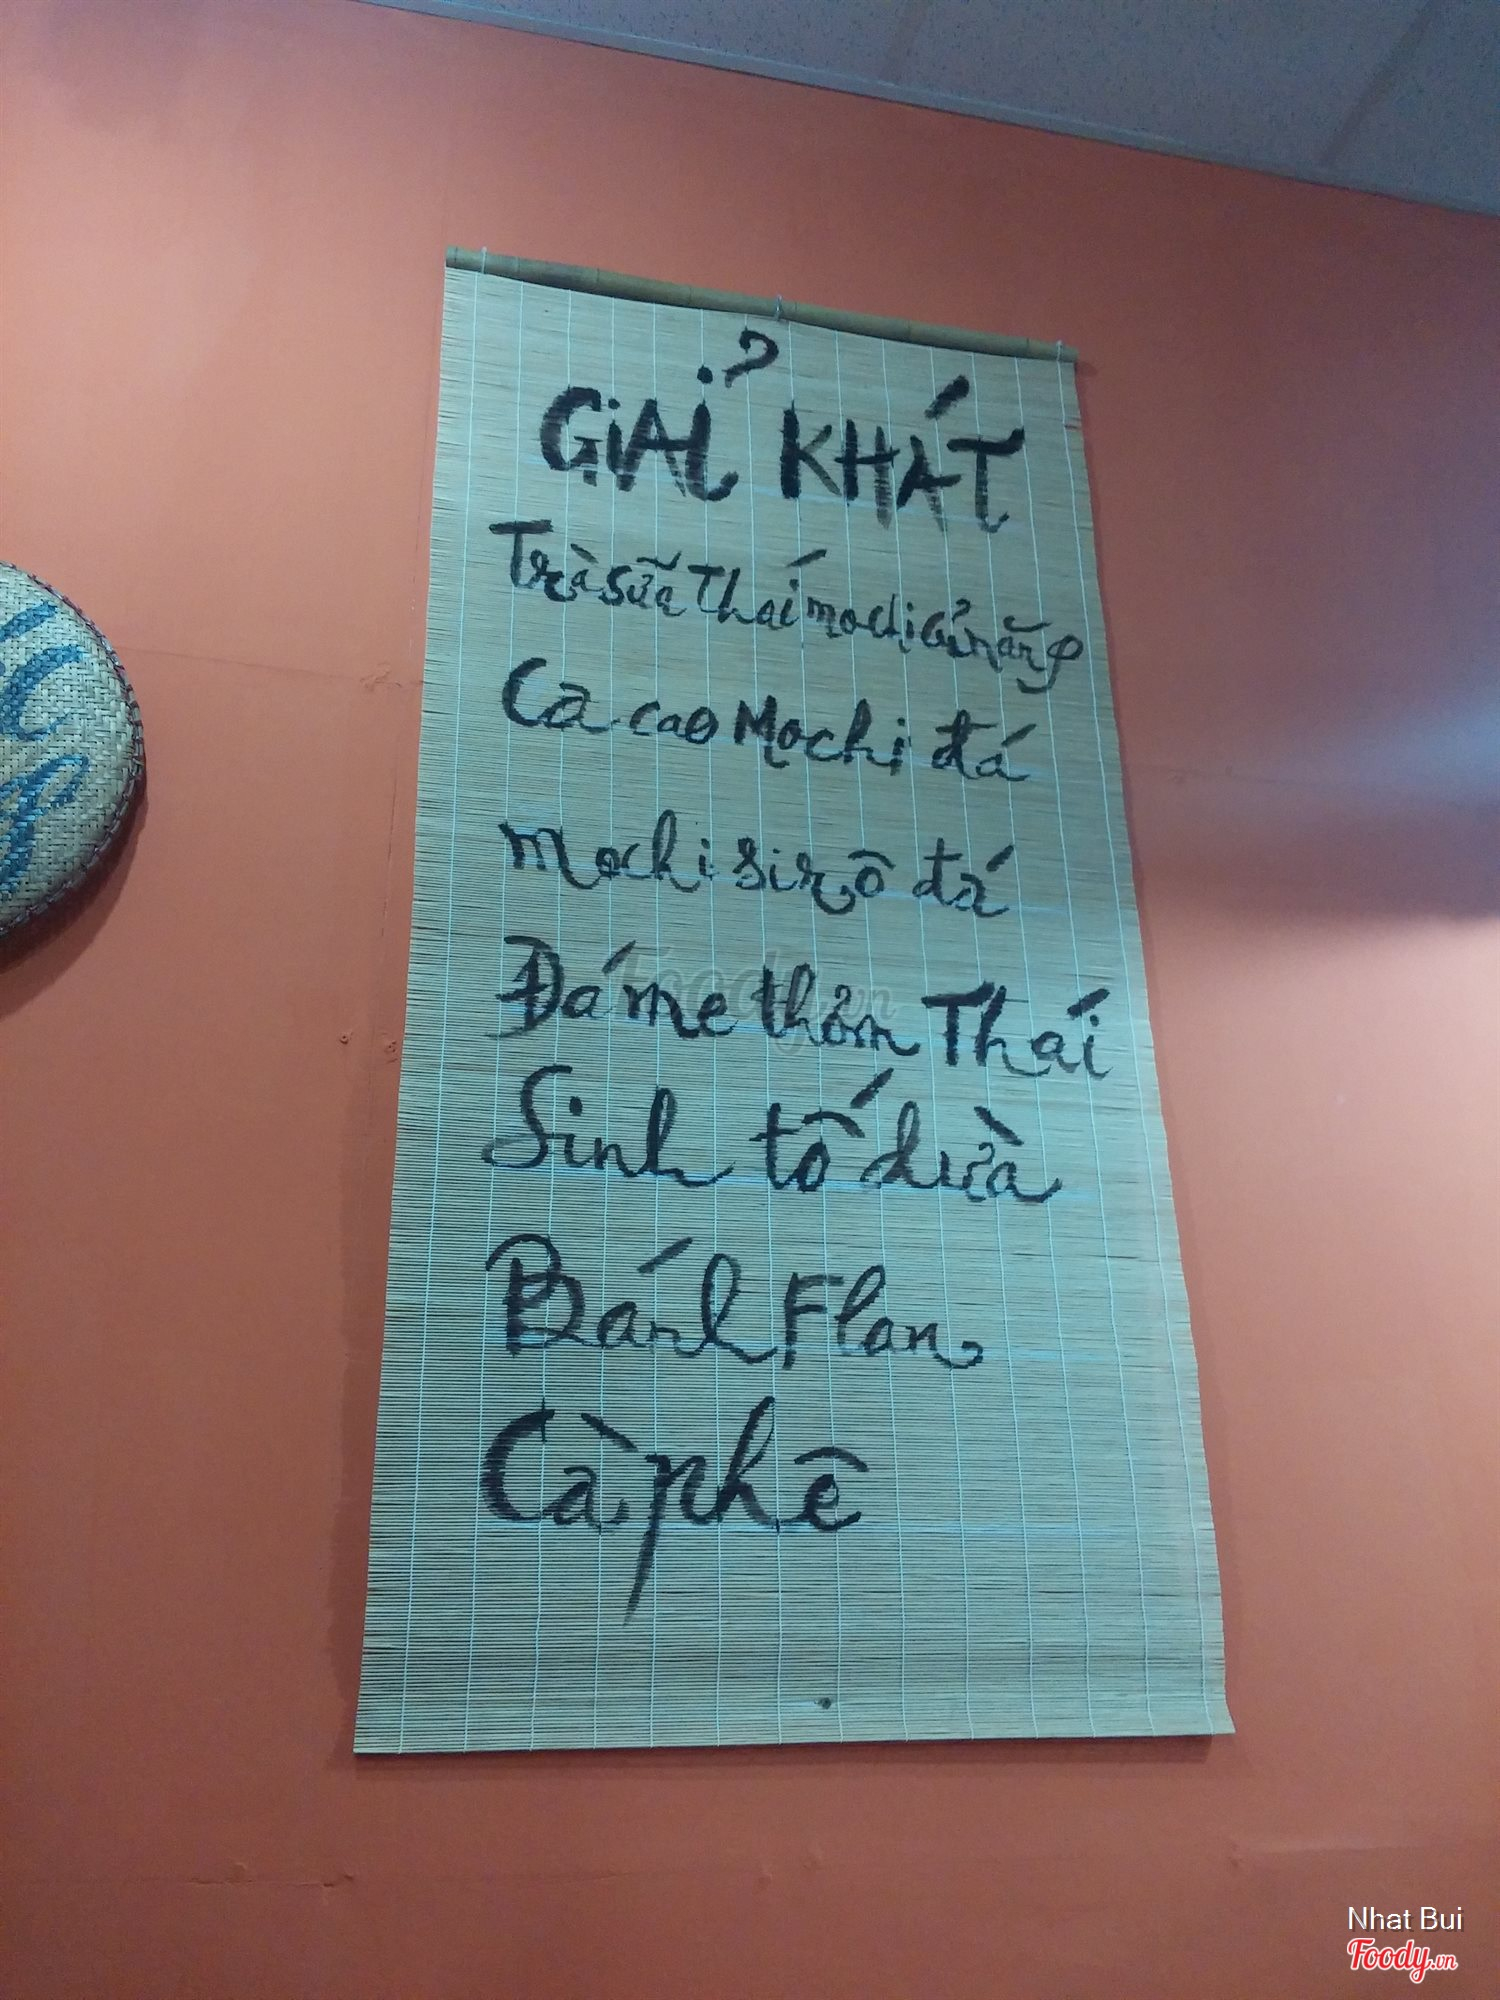 GIẢI KHÁT
Trà sữa Thái mochi củ năng
Ca cao Mochi đá
mochi sirô đá
Đá me thơm Thái
Sinh tố dừa
Bánh Flan
Cà phê
Foody.vn
Nhat Bui
Foody.vn